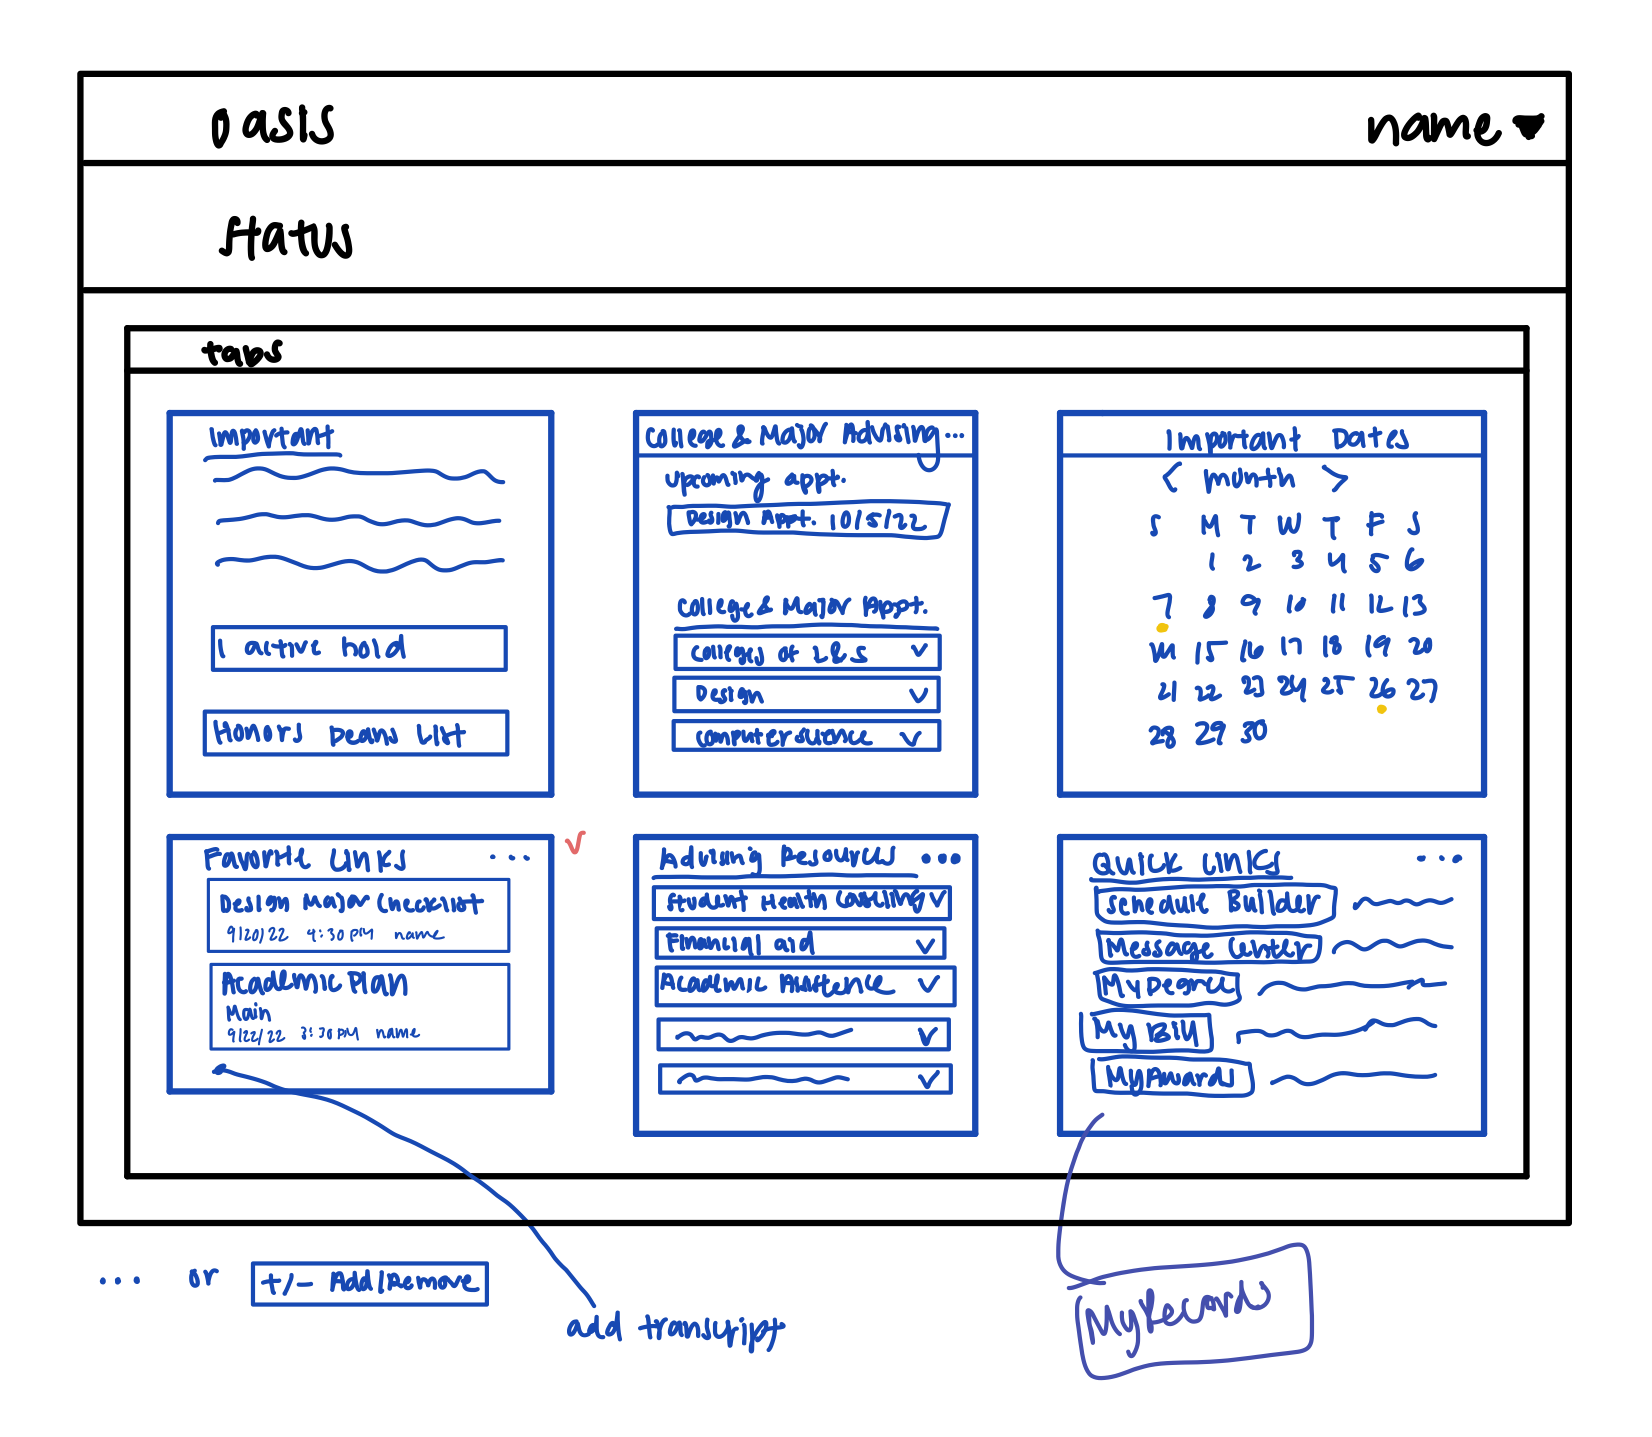 oasis
name
status
tabs
Important
1 active hold
Honors Deans List
College & Major Advising ...
upcoming appt.
Design Appt. 10/5/22
College & Major Appt.
Colleges of L&S
Design
computer science
Important Dates
< month >
S M T W T F S
1 2 3 4 5 6
7 8 9 10 11 12 13
14 15 16 17 18 19 20
21 22 23 24 25 26 27
28 29 30
Favorite Links ...
Design Major Checklist
9/20/22 4:30 PM name
Academic Plan
Main
9/22/22 3:30 PM name
Advising Resources ...
Student Health
Financial aid
Academic
Quick Links ...
Schedule Builder
Message Center
MyDegree
My Bill
MyAwards
... or +/- Add/Remove
add transcript
MyRecord